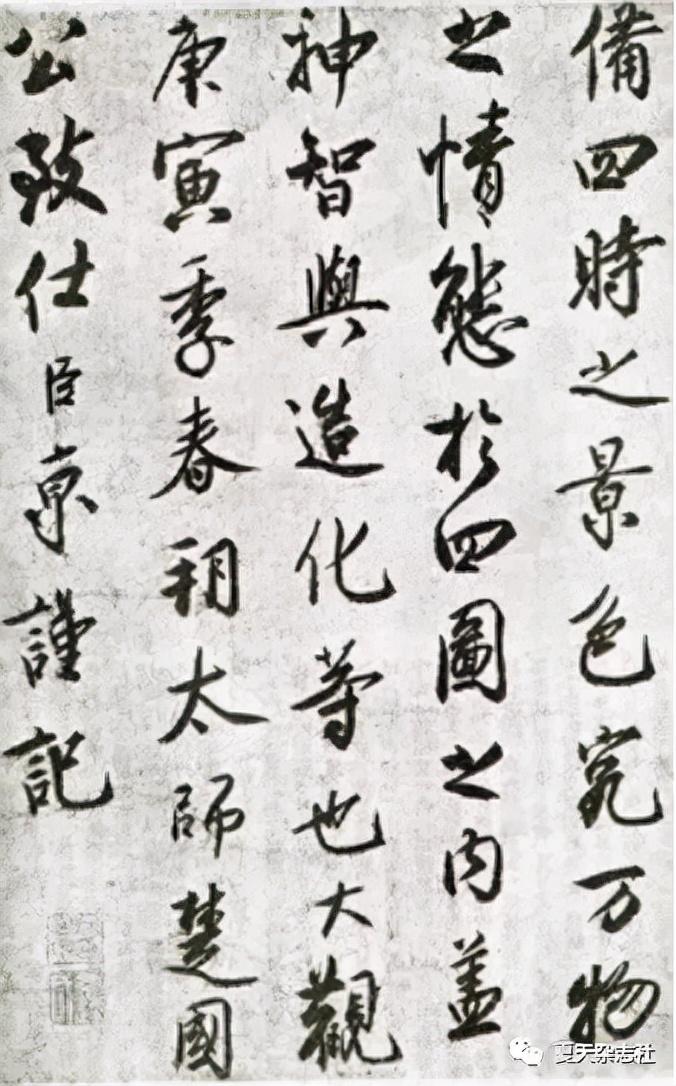 備四時之景色究万物
之情態於四圖之内盖
神智與造化等也大觀
庚寅季春朔太師楚國
公致仕臣京謹記
夏天杂志社